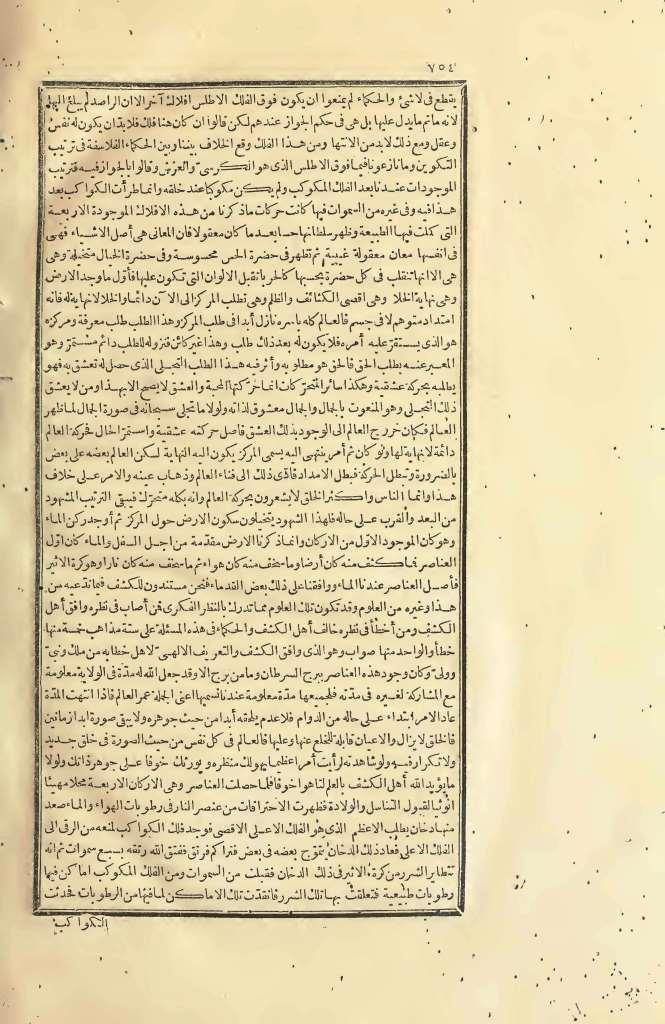 ٧٥٤
ينقطع فى لاشئ والحكماء لم يمنعوا ان يكون فوق الفلك الاطلس افلاك آخر الا ان الراصد لم يبلغ اليها
لانه ما ثم ما يدل عليها بل هى فى حكم الجواز عندهم لكن قالوا ان كان هنا فلك فلا بد ان يكون له نفس
وعقل ومع ذلك لا بد من الانتها ومن هذا الفلك وقع الخلاف بيننا وبين الحكماء الفلاسفة فى ترتيب
التكوين وما نازعونا فيما فوق الاطلس الذى هو الكرسىّ والعرش وقالوا بالجواز فيه فترتيب
الموجودات عندنا بعد الفلك المكوكب ولم يكن مكوكبا عند خلقه وانما طرأت الكواكب بعد
هذا فيه وفى غيره من السموات فيها كانت حركات ما ذكرنا من هذه الافلاك الموجودة الاربعة
التى كملت فيها الطبيعة وظهر سلطانها حسا بعد ما كان معقولا فان المعانى هى أصل الاشياء فهى
فى انفسها معان معقولة غيبية ثم تظهر فى حضرة الحس محسوسة وفى حضرة الخيال متخيلة وهى
هى الا انها تنقلب فى كل حضرة بحسبها كالحرباء تقبل الالوان التى تكون عليها فأول ما وجد الارض
وهى نهاية الخلا وهى اقصى الكثائف والظلم وهى تطلب المركز الى الآن دائما والخلا لانهاية له فانه
امتداد متوهم لا فى جسم فالعالم كله باسره نازل أبدا فى طلب المركز وهذا الطلب طلب معرفة ومركزه
هو الذى يستقرّ عليه أمره فلا يكون له بعد ذلك طلب وهذا غير كائن فنزوله للطلب دائم مستمرّ وهو
المعبر عنه بطلب الحق فالحق هو مطلوبه وأثر فيه هذا الطلب التجلى الذى حصل له تعشق به فهو
يطلبه بحركة عشقية وهكذا سائر المتحرّكات انما حرّكتها المحبة والعشق لا يصح الا بهذا ومن لا يعشق
ذلك التجلى وهو المنعوت بالجمال والجمال معشوق لذاته ولولا ما تجلى سبحانه فى صورة الجمال لما ظهر
العالم فكان خروج العالم الى الوجود بذلك العشق فاصل حركته عشقية واستمرّ الحال فحركة العالم
دائمة لانهاية لها ولو كان ثم أمر ينتهى اليه يسمى المركز يكون اليه النهاية لسكن العالم بعضه على بعض
بالضرورة وتبطل الحركة فبطل الامداد فأدّى ذلك الى فناء العالم وذهاب عينه والامر على خلاف
هذا وانما الناس واكثر الخلق لا يشعرون بحركة العالم وانه بكله متحرّك فيبقى الترتيب المشهود
من البعد والقرب على حاله فلهذا الشهود يتخيلون سكون الارض حول المركز ثم أوجد ركن الماء
وهو كان الموجود الاول من الاركان وانما ذكرنا الارض مقدّمة من اجل السفل والماء كان اوّل
العناصر فما كثف منه كان أرضا وما سخف منه كان هواء ثم ما سخف منه كان نارا وهو كرة الاثير
فأصل العناصر عندنا الماء ووافقنا على ذلك بعض القدماء فنحن مستندون للكشف فيما ندّعيه من
هذا وغيره من العلوم وقد تكون تلك العلوم مما تدرك بالنظر الفكرى فمن أصاب فى نظره وافق أهل
الكشف ومن أخطأ فى نظره خالف أهل الكشف والحكماء فى هذه المسئلة على ستة مذاهب خمسة منها
خطأ والواحد منها صواب وهو الذى وافق الكشف والتعريف الالهىّ لاهل خطابه من ملك ونبىّ
وولىّ وكان وجود هذه العناصر ببرج السرطان وما من برج الا وقد جعل الله له مدّة فى الولاية معلومة
مع المشاركة لغيره فى مدّته فلجميعها مدّة معلومة عندنا نسميها اعنى الجلة عمر العالم فاذا انتهت المدّة
عاد الامر ابتداء على حاله من الدوام فلا عدم يلحقه أبدا من حيث جوهره ولا يبقى صورة ابدا زمانين
فالخلق لا يزال والاعيان قابلة للخلع عنها وعليها فالعالم فى كل نفس من حيث الصورة فى خلق جديد
ولا تكرار فيه ولو شاهدته لرأيت أمرا عظيما يهولك منظره ويورثك خوفا على جوهر ذاتك ولولا
ما يؤيد الله أهل الكشف بالعلم لتاهوا خوفا فلما حصلت العناصر وهى الاركان الاربعة محلا مهيئا
انوثيا لقبول التناسل والولادة فظهرت الاحتراقات من عنصر النار فى رطوبات الهواء والماء صعد
منها دخان يطلب الاعظم الذى هو الفلك الاعلى الاقصى فوجد فلك الكواكب لمنعه من الرقى الى
الفلك الاعلى فعاد ذلك الدخان يتموّج بعضه فى بعض فتراكم فرتق ففتق الله رتقه بسبع سموات ثم انه
تتطاير الشرر من كرة الاثير فى ذلك الدخان فقبلت من السموات ومن الفلك المكوكب اماكن فيها
رطوبات طبيعية فتعلقت بها تلك الشرر فانقدت تلك الاماكن لما فيها من الرطوبات فحدثت
الكواكب